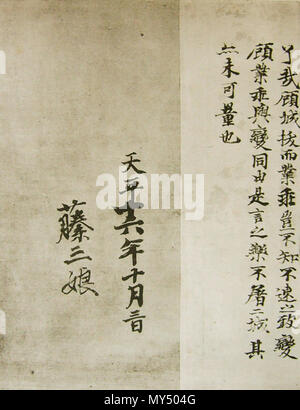 了哉顧城拔而業乖豈不知不速之致變
顧業乖與變同由是言之樂不屠二城其
亦未可量也
天平十六年十月三日
藤三娘
alamy - MY504G